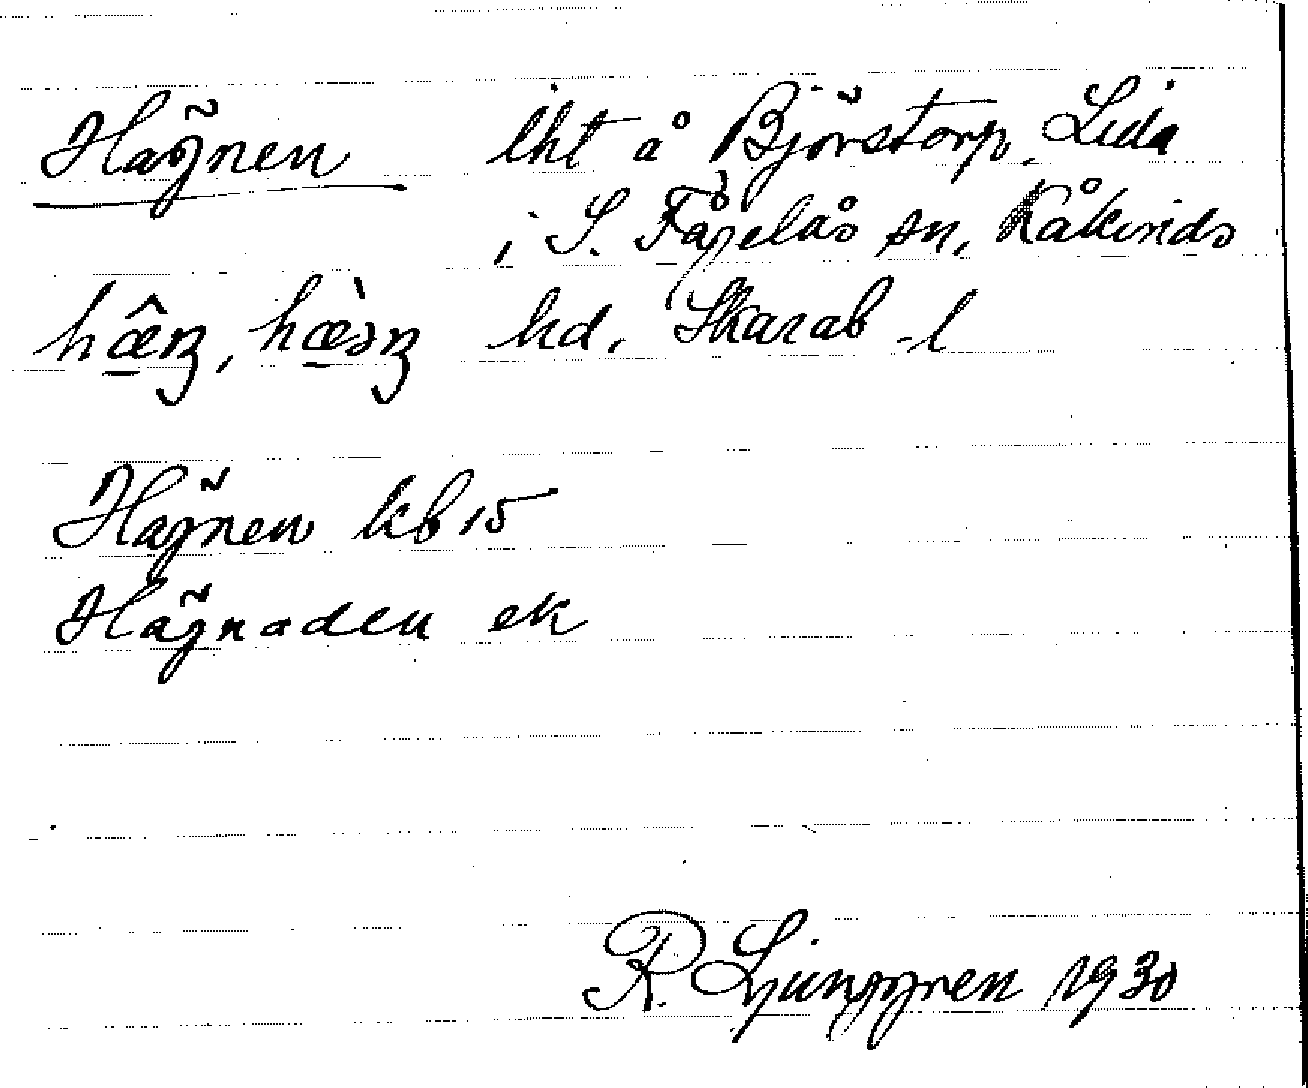 Hägnen lht å Björstorp, Lida
i S. Fågelås sn, Kåkinds
hd, Skarab -l
Hägnen kb 15
Hägnaden ek
R. Ljunggren 1930